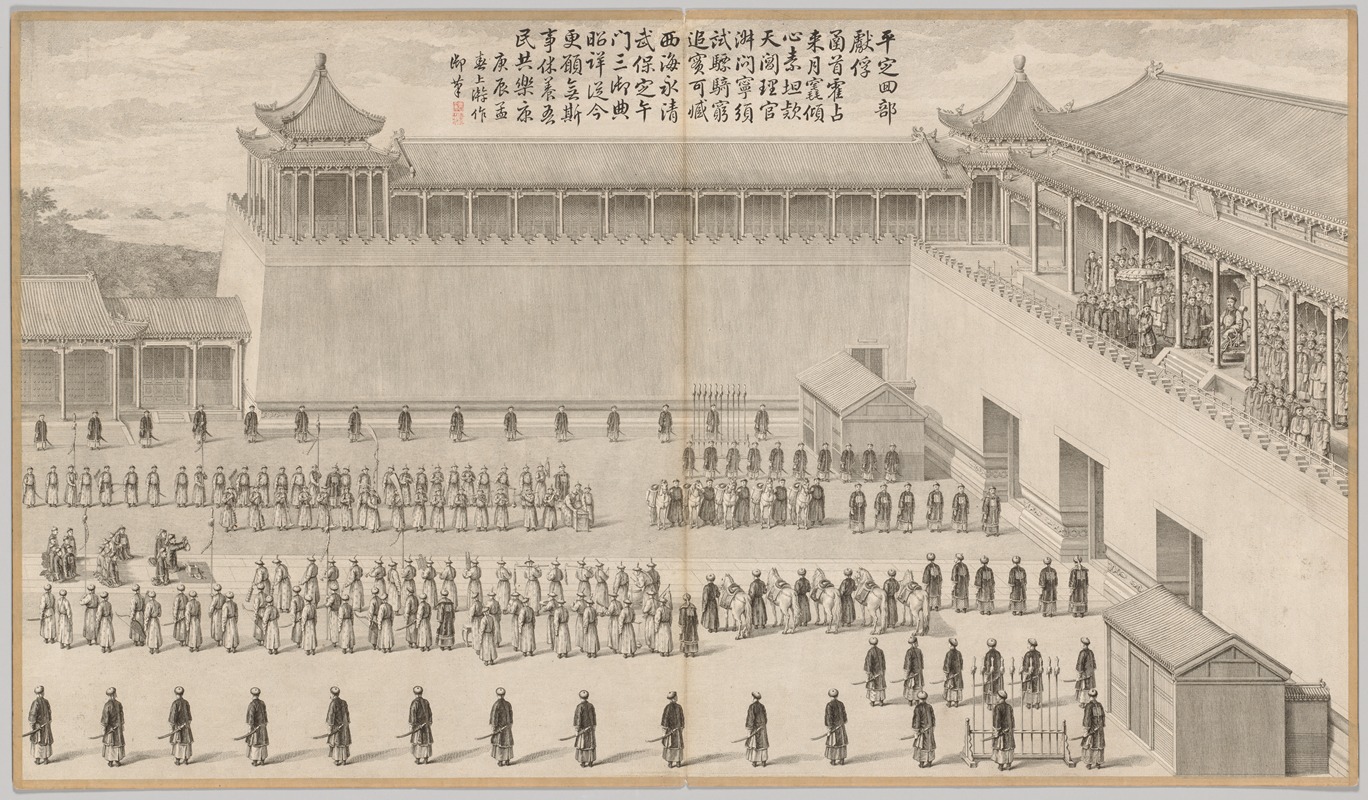 平定回部
獻俘
函首霍占
来月竁傾
心素坦欵
天閽理官
淋问寧須
試驃騎窮
追實可臧
西海永清
武保定午
门三御典
昭祥從今
更願無斯
事休養吾
民共樂康
庚辰孟
春上澣作
御筆